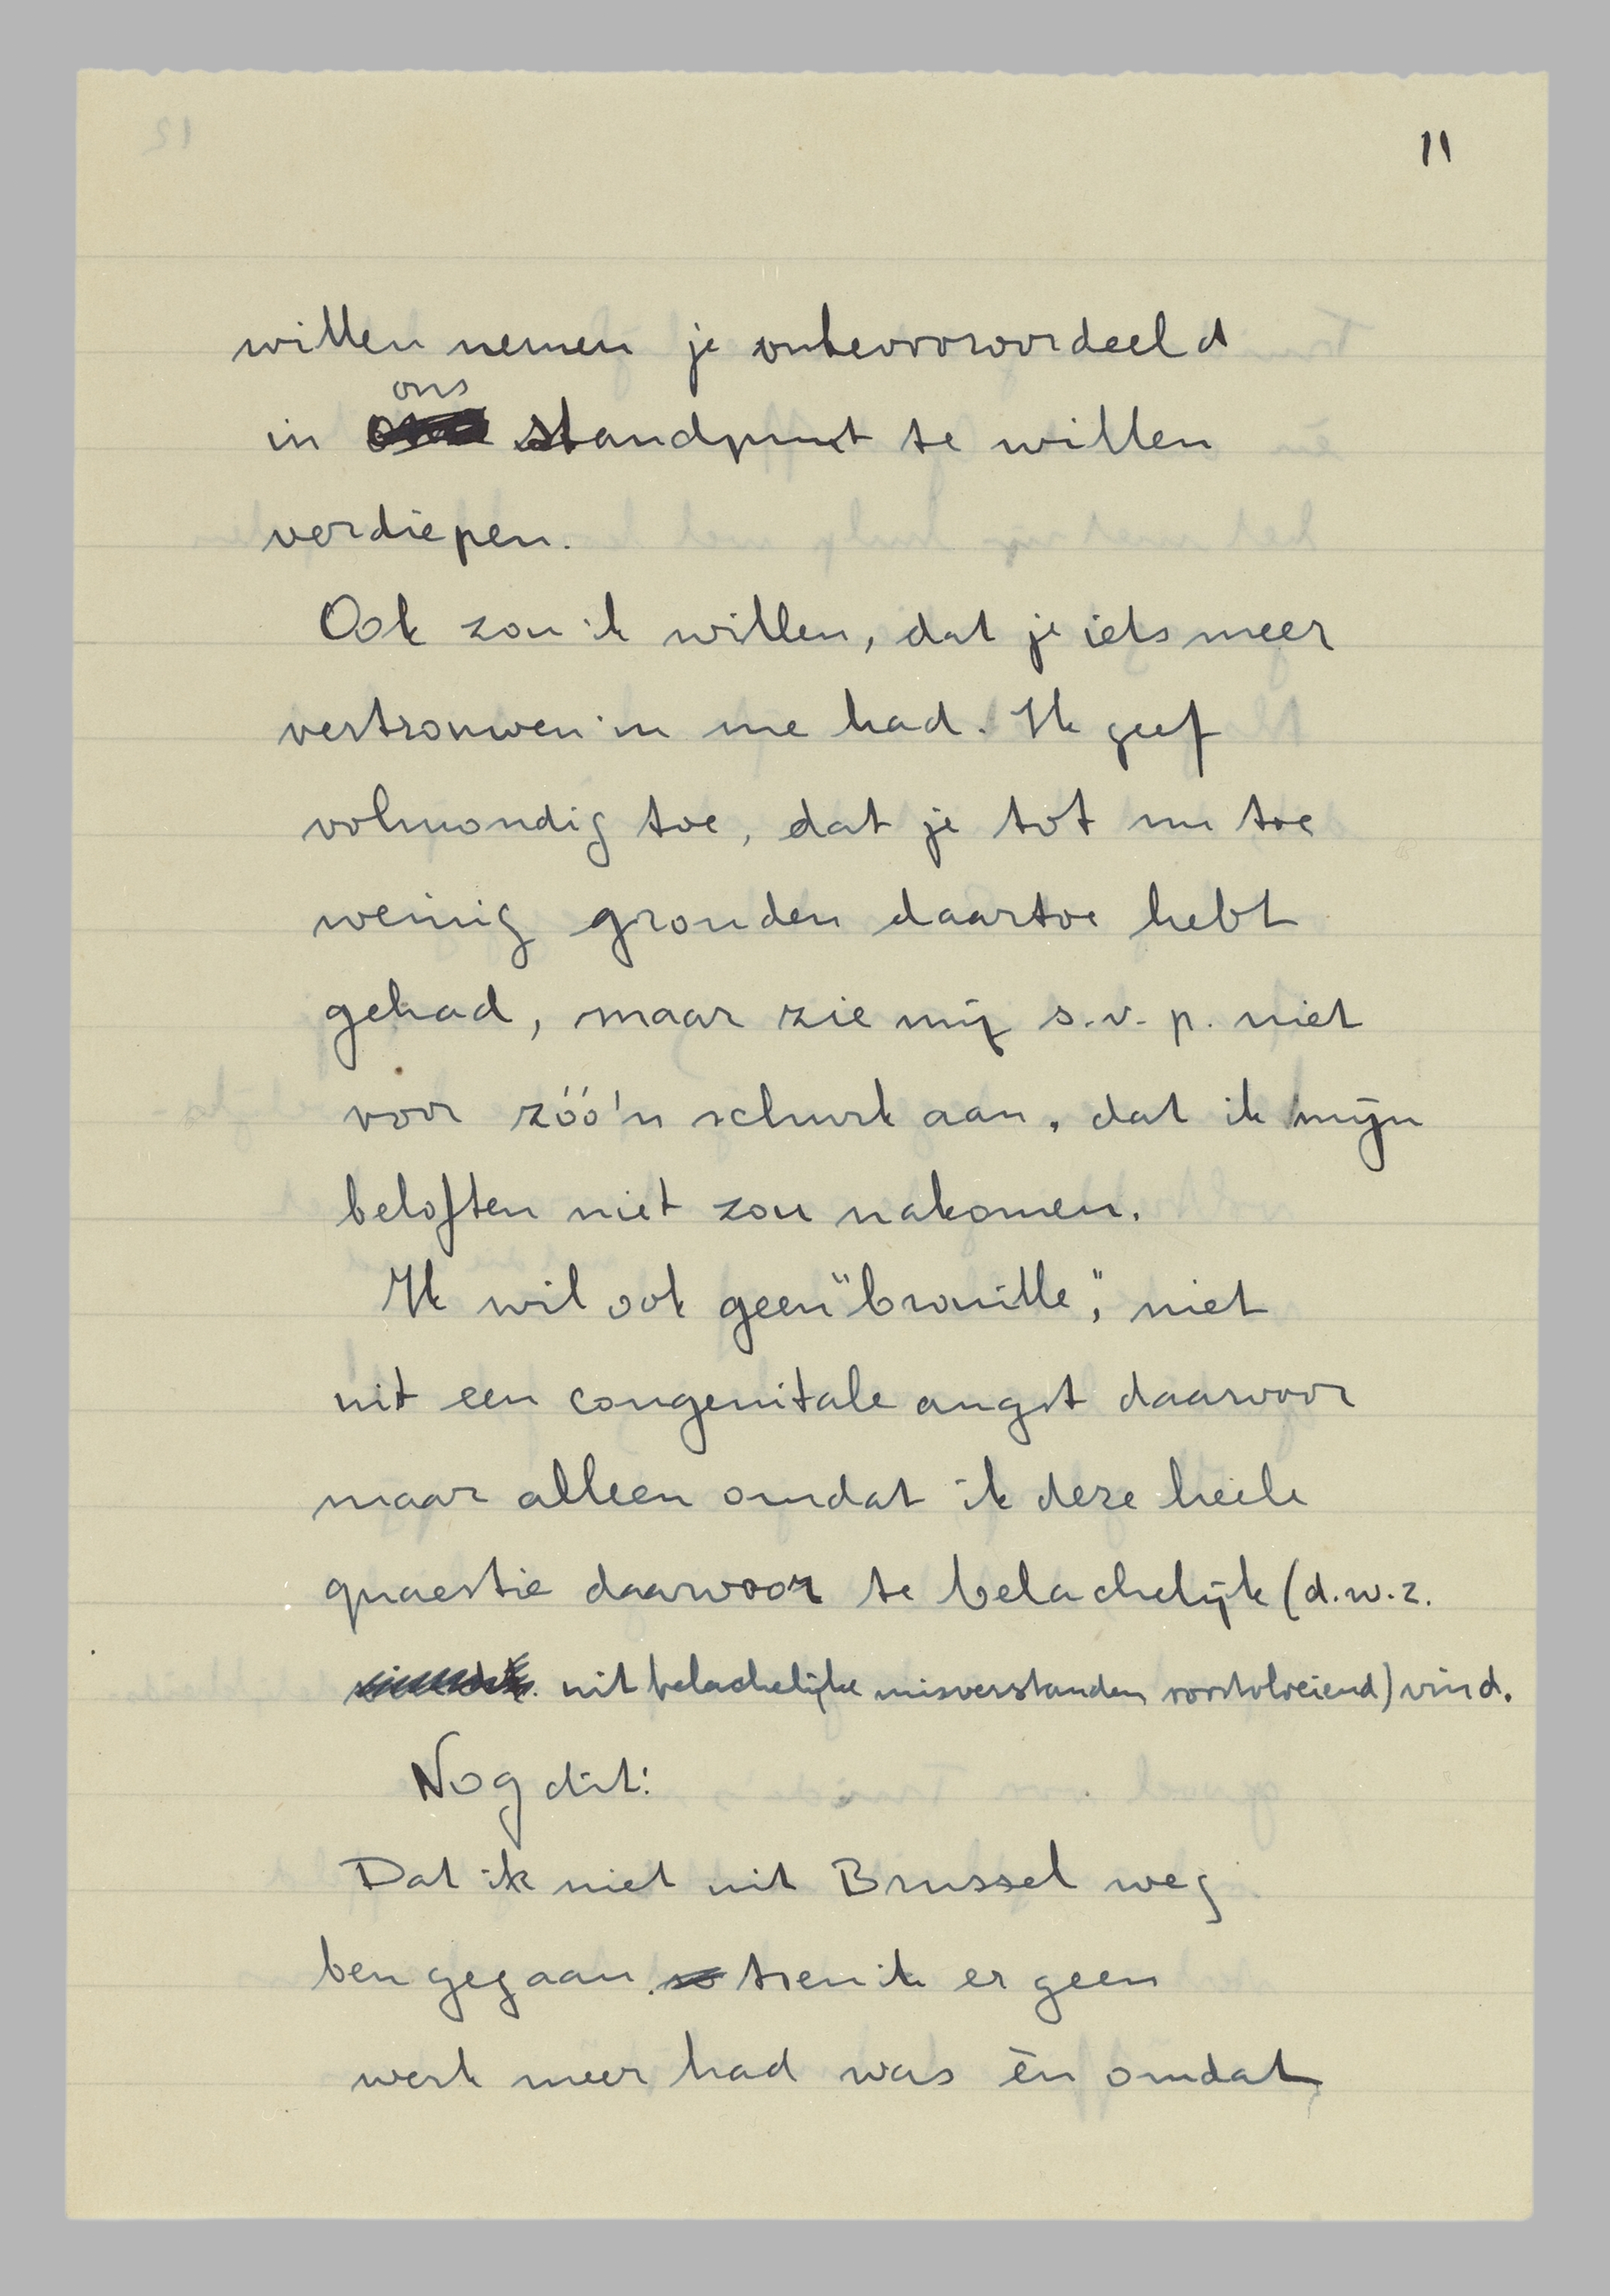 11
willen nemen je onbevooroordeeld
ons
in standpunt te willen
verdiepen.
Ook zou ik willen, dat je iets meer
vertrouwen in me had. Ik geef
volmondig toe, dat je tot nu toe
weinig gronden daartoe hebt
gehad, maar zie mij s.v.p. niet
voor zóó'n schurk aan, dat ik mijn
beloften niet zou nakomen.
Ik wil ook geen "brouille", niet
uit een congenitale angst daarvoor
maar alleen omdat ik deze heele
quaestie daarvoor te belachelijk (d.w.z.
uit belachelijke misverstanden voortvloeiend) vind.
Nog dit:
Dat ik niet uit Brussel weg
ben gegaan toen ik er geen
werk meer had was èn omdat